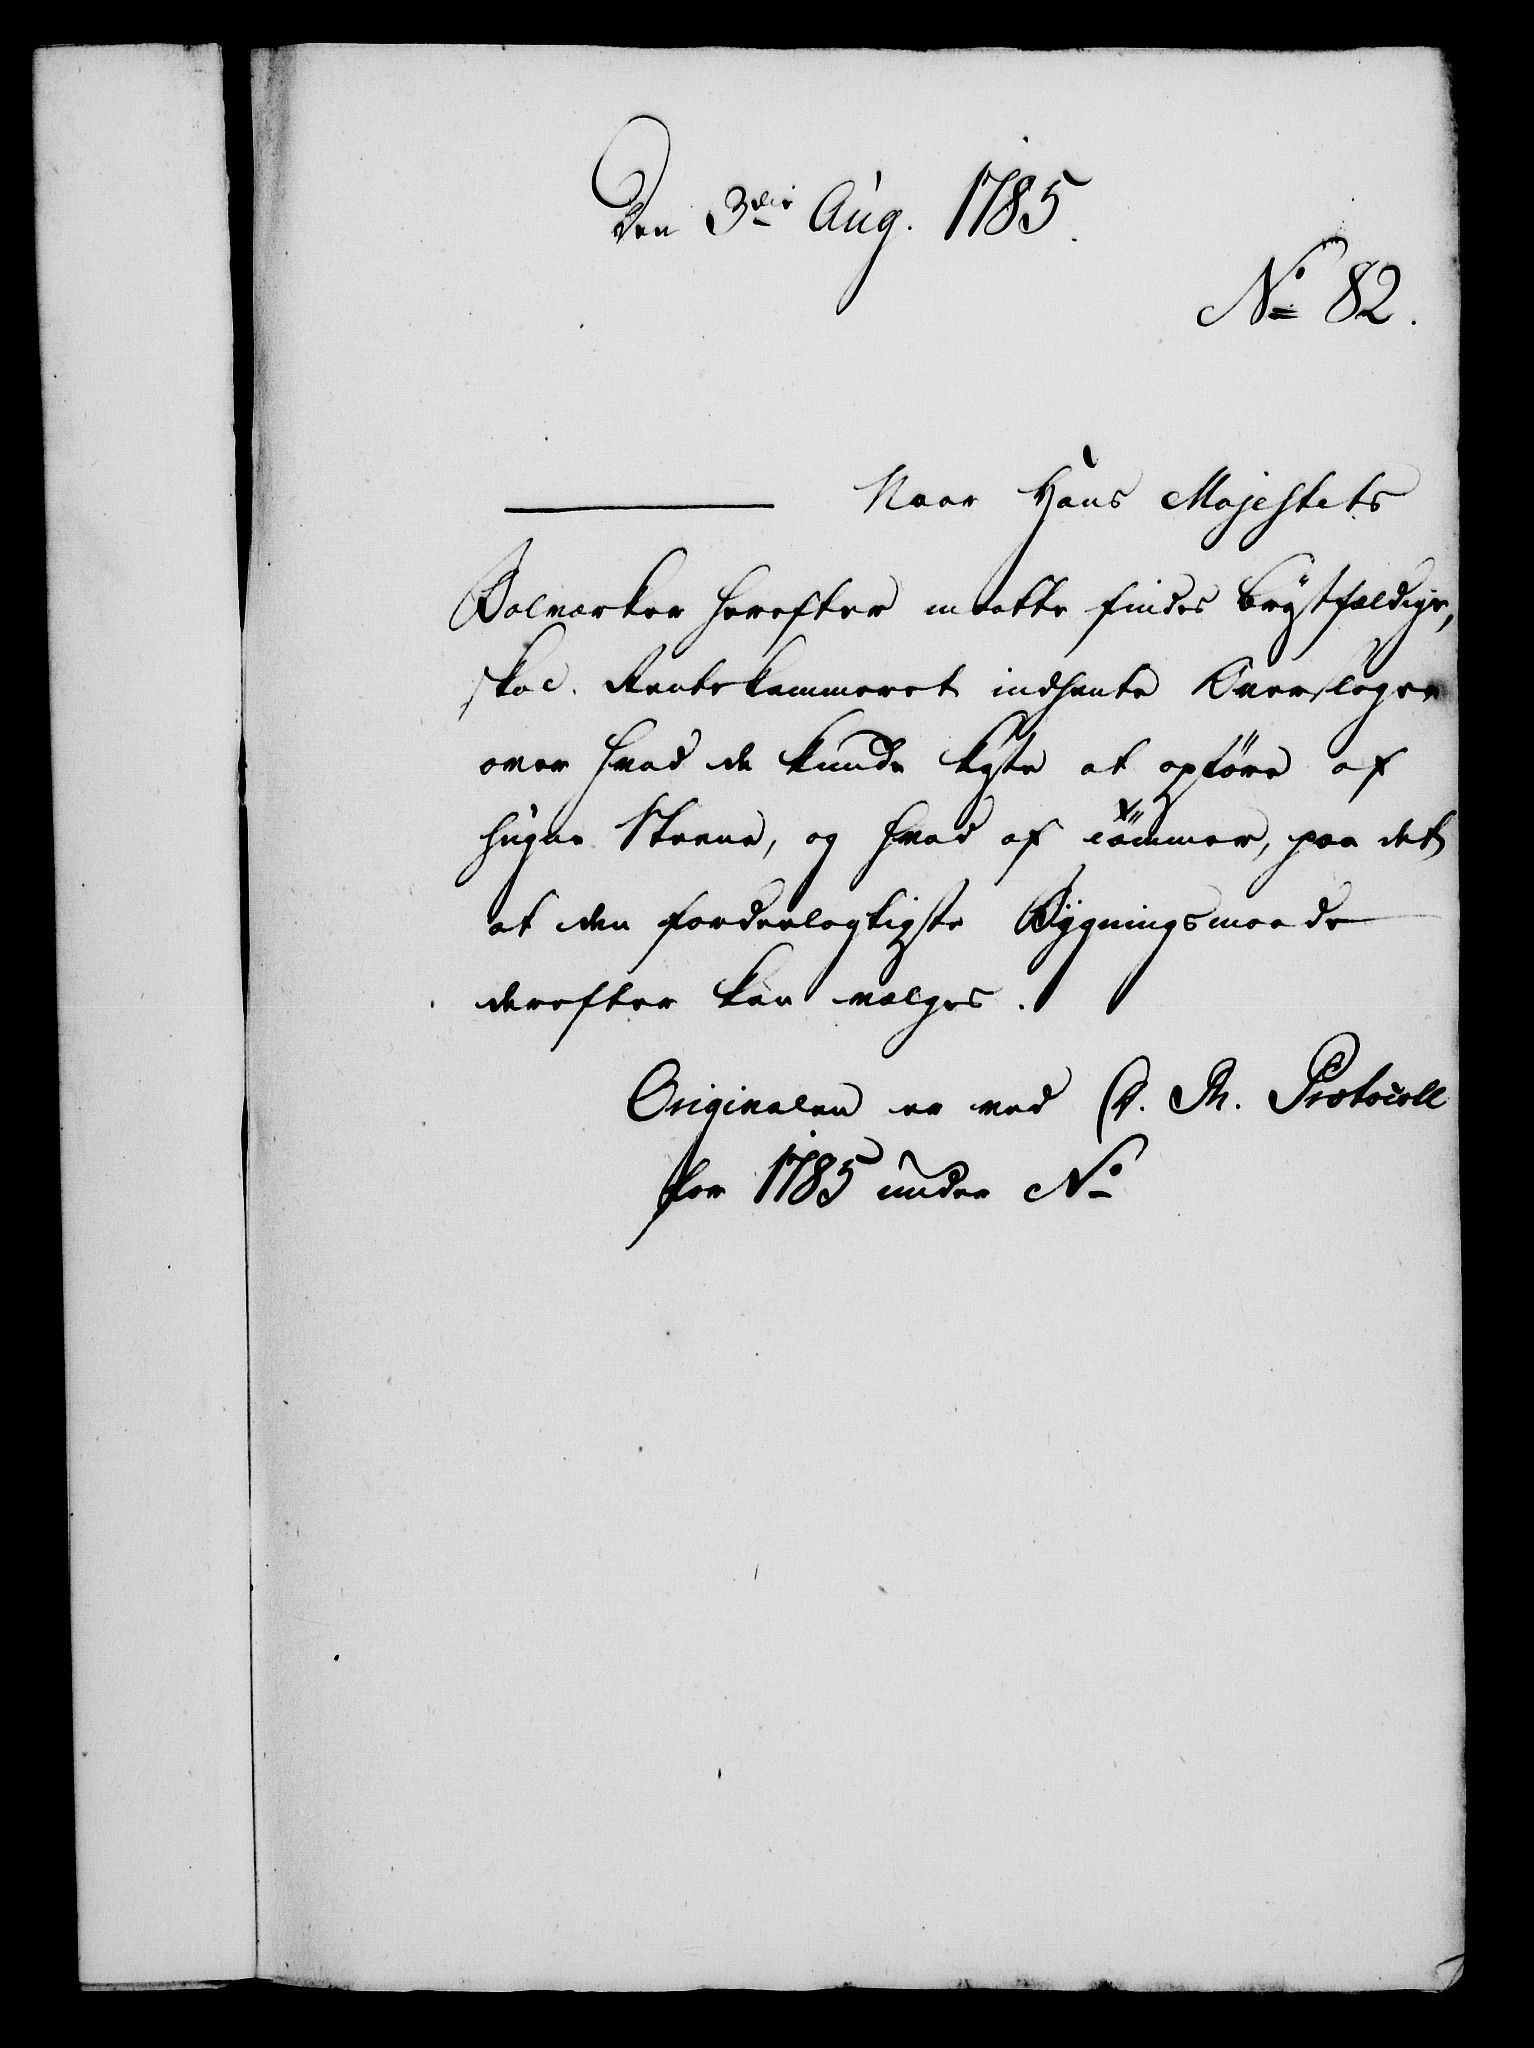 Den 3die Aug. 1785.
No 82.
Naar Hans Majestets
Bolværker herefter maatte findes brystfældige,
skal Rentekammeret indhente Overslager
over hvad de kunde kyste at opföre af
hugne Steene, og hvad af tömmer, paa det
at den fordeelagtigste Bygningsmaade
derefter kan vælges.
Originalen er ved Protocoll
for 1785 under No